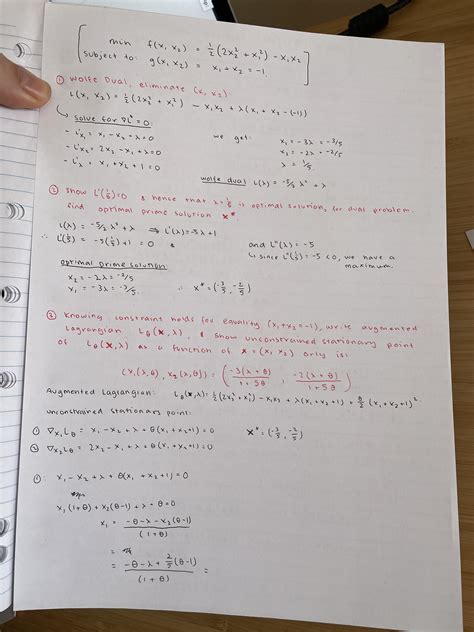 min f(x₁ x₂) = ½(2x₂² + x₁²) - x₁x₂
subject to: g(x₁ x₂) = x₁ + x₂ = -1.
① Wolfe Dual, eliminate (x₁ x₂)
L(x₁ x₂) = ½(2x₂² + x₁²) - x₁x₂ + λ(x₁ + x₂ - (-1))
solve for ∇L = 0:
- L'x₁ = x₁ - x₂ + λ = 0
- L'x₂ = 2x₂ - x₁ + λ = 0
- L'λ = x₁ + x₂ + 1 = 0
we get:
x₁ = -3λ = -3/5
x₂ = -2λ = -2/5
λ = 1/5
wolfe dual L(λ) = -5/2 λ² + λ
② show L'(1/5)=0 & hence that λ=1/5 is optimal solution, for dual problem.
find optimal prime solution x*
L(λ) = -5/2 λ² + λ ⇒ L'(λ) = -5λ + 1
∴ L'(1/5) = -5(1/5) + 1 = 0 &
and L''(λ) = -5
↳ since L''(1/5) = -5 < 0, we have a
maximum.
optimal prime solution:
x₂ = -2λ = -2/5
x₁ = -3λ = -3/5.
∴ x* = (-3/5, -2/5)
③ Knowing constraint holds for equality (x₁+x₂=-1), write augmented
Lagrangian Lθ(x,λ), & show unconstrained stationary point
of Lθ(x,λ) as a function of x = (x₁ x₂) only is:
(x₁(λ,θ), x₂(λ,θ)) = (-3(λ+θ)/1+5θ, -2(λ+θ)/1+5θ)
Augmented Lagrangian: Lθ(x,λ) = ½(2x₂² + x₁²) - x₁x₂ + λ(x₁+x₂+1) + θ/2 (x₁+x₂+1)².
unconstrained stationary point:
① ∇x₁Lθ = x₁ - x₂ + λ + θ(x₁+x₂+1) = 0
② ∇x₂Lθ = 2x₂ - x₁ + λ + θ(x₁+x₂+1) = 0
x* = (-3/5, -2/5)
①: x₁ - x₂ + λ + θ(x₁+x₂+1) = 0
x₁(1+θ) + x₂(θ-1) + λ + θ = 0
x₁ = -θ - λ - x₂(θ-1) / (1+θ)
=
= -θ - λ + 2/5(θ-1) / (1+θ) =